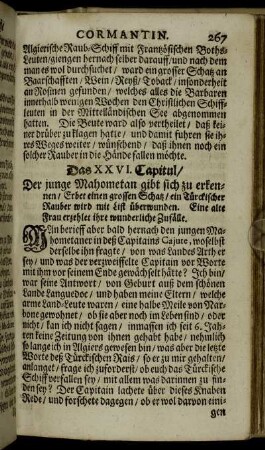 CORMANTIN. 267
Algierische Raub-Schiff mit Französischen Boths-
Leuten/giengen hernach selber darauff/und nach dem
man es wol durchsuchet/ ward ein grosser Schatz an
Baarschafften/ Wein/ Reyß/ Toback/ insonderheit
an Rosinen gefunden/ welches alles die Barbaren
innerhalb wenigen Wochen den Christlichen Schiff-
leuten in der Mittelländischen See abgenommen
hatten. Die Beute ward also vertheilet/ daß kei-
ner drüber zu klagen hatte/ und damit fuhren sie ih-
res Weges weiter/ wünschend/ daß ihnen noch ein
solcher Rauber in die Hände fallen möchte.
Das XXVI. Capitul/
Der junge Mahometan gibt sich zu erken-
nen/ Erbet einen grossen Schatz/ ein Türckischer
Rauber wird mit List überwunden. Eine alte
Frau erzehlet ihre wunderliche Zufälle.
MAn berieff aber bald hernach den jungen Ma-
hometaner in deß Capitains Cajute, woselbst
derselbe ihn fragte/ von was Landes Art er
sey/ und was der verzweiffelte Capitain vor Worte
mit ihm vor seinem Ende gewächselt hätte? Ich bin/
war seine Antwort/ von Geburt auß dem schönen
Lande Languedoc/ und haben meine Eltern/ welche
arme Land-Leute waren/ eine halbe Meile von Nar-
bone gewohnet/ ob sie aber noch im Leben sind/ oder
nicht/ kan ich nicht sagen/ inmassen ich seit 6. Jah-
ren keine Zeitung von ihnen gehabt habe/ nehmlich
so lange ich in Algiers gewesen bin/ was aber die letzte
Worte deß Türckischen Rais/ so er zu mir gehalten/
anlanget/ frage ich zuforderst/ ob euch das Türckische
Schiff verfallen sey/ mit allem was darinnen zu fin-
den sey? Der Capitain lachete über dieses Knaben
Rede/ und forschete dagegen/ ob er wol darvon eini-
gen